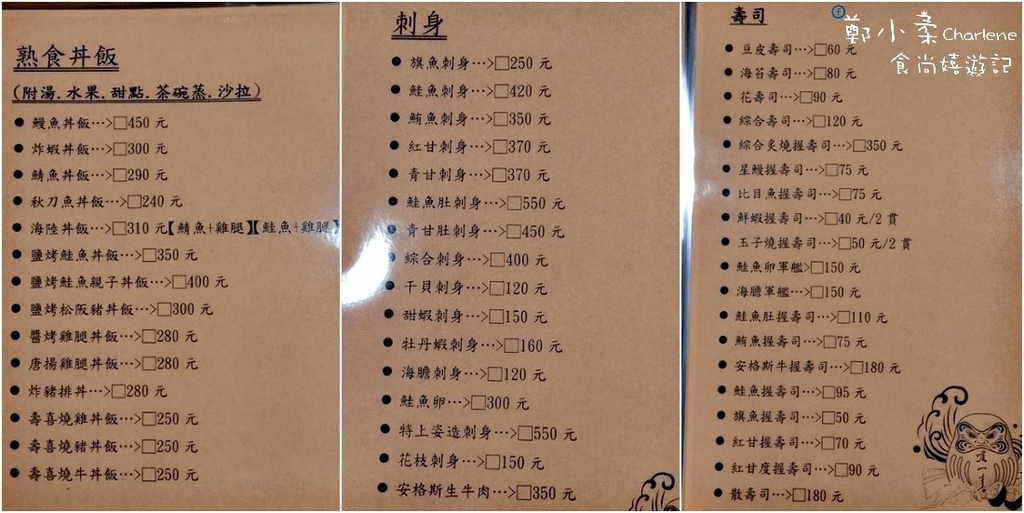 熟食丼飯
(附湯.水果.甜點.茶碗蒸.沙拉)
● 鰻魚丼飯…>□450 元
● 炸蝦丼飯…>□300 元
● 鯖魚丼飯…>□290 元
● 秋刀魚丼飯…>□240 元
● 海陸丼飯…>□310 元【鯖魚+雞腿】【鮭魚+雞腿】
● 鹽烤鮭魚丼飯…>□350 元
● 鹽烤鮭魚親子丼飯…>□400 元
● 鹽烤松阪豬丼飯…>□300 元
● 醬烤雞腿丼飯…>□280 元
● 唐揚雞腿丼飯…>□280 元
● 炸豬排丼…>□280 元
● 壽喜燒雞丼飯…>□250 元
● 壽喜燒豬丼飯…>□250 元
● 壽喜燒牛丼飯…>□250 元
刺身
● 旗魚刺身…>□250 元
● 鮭魚刺身…>□420 元
● 鮪魚刺身…>□350 元
● 紅甘刺身…>□370 元
● 青甘刺身…>□370 元
● 鮭魚肚刺身…>□550 元
● 青甘肚刺身…>□450 元
● 綜合刺身…>□400 元
● 干貝刺身…>□120 元
● 甜蝦刺身…>□150 元
● 牡丹蝦刺身…>□160 元
● 海膽刺身…>□120 元
● 鮭魚卵…>□300 元
● 特上姿造刺身…>□550 元
● 花枝刺身…>□150 元
● 安格斯生牛肉…>□350 元
壽司
● 豆皮壽司…>□60 元
● 海苔壽司…>□80 元
● 花壽司…>□90 元
● 綜合壽司…>□120 元
● 綜合炙燒握壽司…>□350 元
● 星鰻握壽司…>□75 元
● 比目魚握壽司…>□75 元
● 鮮蝦握壽司…>□40 元/2 貫
● 玉子燒握壽司…>□50 元/2 貫
● 鮭魚卵軍艦>□150 元
● 海膽軍艦…>□150 元
● 鮭魚肚握壽司…>□110 元
● 鮪魚握壽司…>□75 元
● 安格斯牛握壽司…>□180 元
● 鮭魚握壽司…>□95 元
● 旗魚握壽司…>□50 元
● 紅甘握壽司…>□70 元
● 紅甘度握壽司…>□90 元
● 散壽司…>□180 元
f 鄭小柔Charlene
食尚嬉遊記